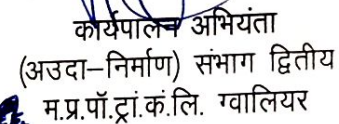 कार्यपालन अभियंता
(अउदा–निर्माण) संभाग द्वितीय
म.प्र.पॉ.ट्रां.कं.लि. ग्वालियर